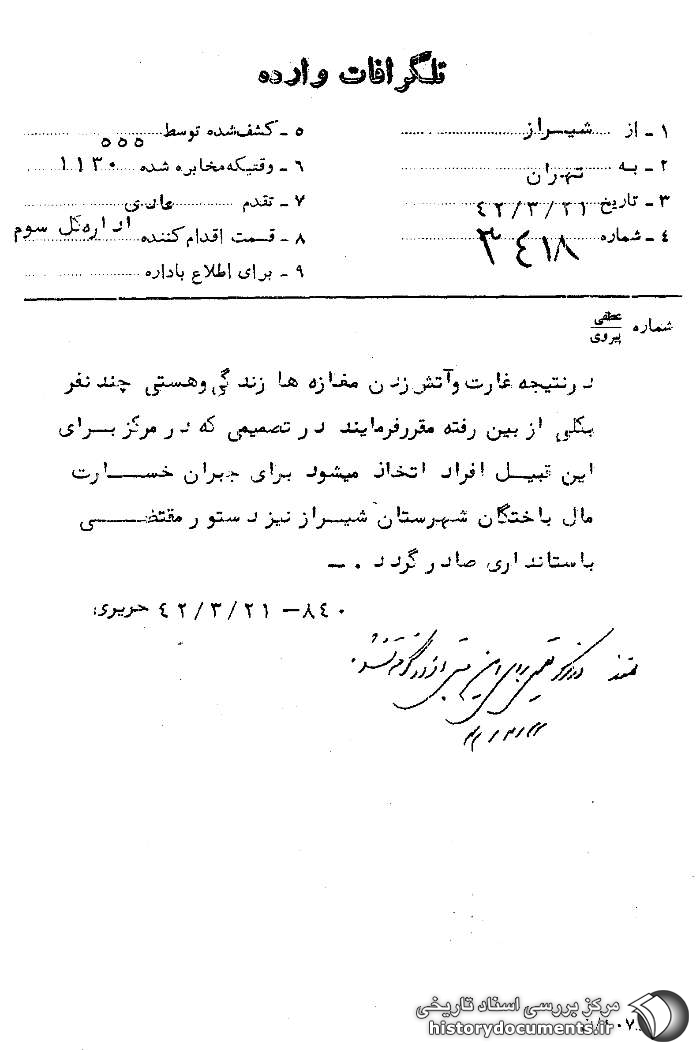 تلگرافات وارده
۱ ـ از شیـراز
۲ ـ به تهران
۳ ـ تاریخ ۴۲/۳/۲۱
۴ ـ شماره ۳۴۱۸
۵ ـ کشف‌شده توسط ۵۵۵
۶ ـ وقتیکه مخابره شده ۱۱۳۰
۷ ـ تقدم عادی
۸ ـ قسمت اقدام کننده اداره‌کل سوم
۹ ـ برای اطلاع باداره
شماره عطفی
پیروی
درنتیجه غارت وآتش زدن مغازه ها زندگی وهستی چند نفر
بکلی از بین رفته مقررفرمایند در تصمیمی که در مرکز بـرای
این قبیـل افراد اتخاذ میشود برای جبران خســارت
مال باختگان شهرستان شیـراز نیز دستور مقتضــی
باستانداری صادر گردد . ـ
۸۴۰ـ ۴۲/۳/۲۱ حریری
مرکز بررسی اسناد تاریخی
historydocuments.ir